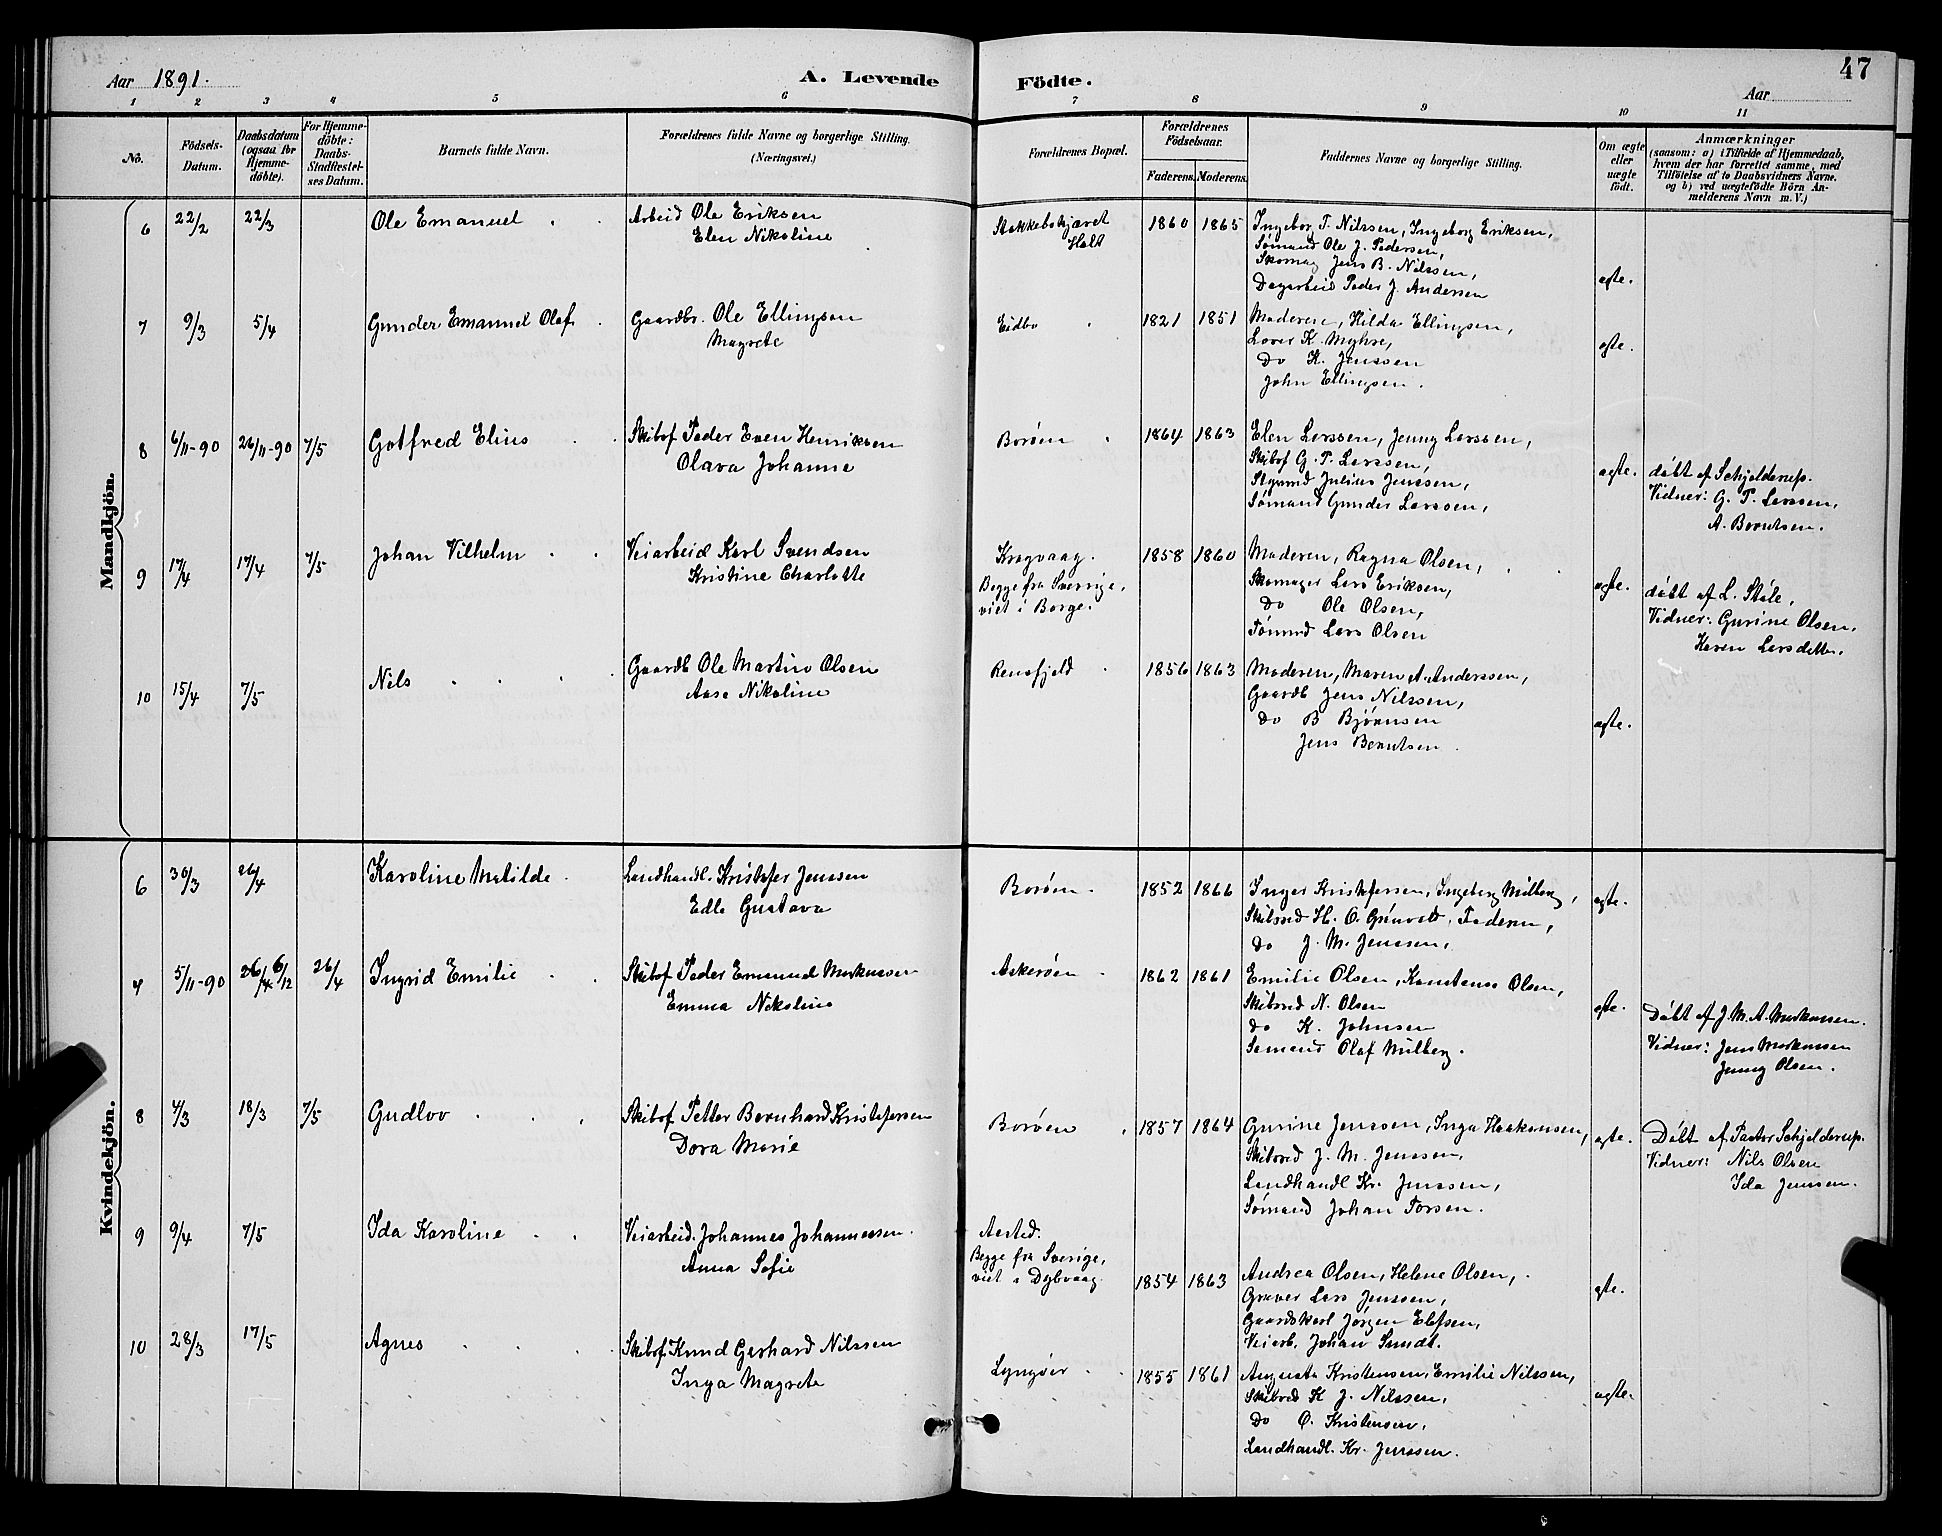 47
Aar 1891.
A. Levende Födte.
Aar
1 2 3 4 5 6 7 8 9 10 11
No.
Födsels-Datum.
Daabsdatum (ogsaa for Hjemme-döbte).
For Hjemme-döbte: Daabs-Stadfæstel-ses Datum.
Barnets fulde Navn.
Forældrenes fulde Navne og borgerlige Stilling.
(Næringsvei.)
Forældrenes Bopæl.
Forældrenes Födselsaar.
Faderens. Moderens.
Faddernes Navne og borgerlige Stilling.
Om ægte eller uægte födt.
Anmærkninger
(saasom: a) i Tilfælde af Hjemmedaab,
hvem der har forrettet samme, med
Tilföielse af to Daabsvidners Navne.
og b) ved uægtefödte Börn An-
melderens Navn m. V.)
Mandkjön.
6 22/2 22/3 Ole Emanuel Arbeid Ole Eriksen
Elen Nikoline
Stokkebskjæret
Holt
1860 1865 Ingeborg T. Nilssen, Ingeborg Eriksen,
Sømand Ole J. Pedersen,
Skomag Jens B. Nilssen,
Dagarbeid Peder J. Andersen
ægte.
7 9/3 5/4 Gunder Emanuel Olaf Gaardbr. Ole Ellingsen
Magrete
Eidbo 1821 1851 Moderen, Hilda Ellingsen,
K. Myhre,
Do K. Jenssen
John Ellingsen.
ægte.
8 6/11-90 26/11-90 7/5 Gotfred Elius Skibsf Peder Even Henriksen
Olava Johanne
Borøen 1864 1863 Elen Larssen, Jenny Larssen,
Skibsf G. P. Larssen,
Julius Jenssen,
Sømand Gunder Larssen,
ægte.
døbt af Schjelderup.
Vidner: G. P. Larssen,
A. Berntsen.
9 17/4 17/4 7/5 Johan Vilhelm Veiarbeid Karl Svendsen
Kristine Charlotte
Kragvaag.
Begge fra Sverrige,
viet i Borge.
1858 1860 Moderen, Ragna Olsen,
Skomager Lars Eriksen,
Do Ole Olsen,
Tømmd Lars Olsen
ægte.
døbt af L. Ståle,
Vidner: Gurine Olsen.
Karen Larsdatter.
10 15/4 7/5 Nils Gaardb Ole Martin Olsen
Aase Nikoline
Rensfjeld 1856 1863 Moderen, Maren A. Anderssen,
Gaardb Jens Nilssen,
Do B Bjørnsen
Jens Berntsen.
ægte.
Kvindekjön.
6 30/3 26/4 Karoline Matilde Landhandl. Kristofer Jenssen
Edle Gustava
Borøen 1852 1866 Inger Kristofersen, Ingeborg Milberg,
Skibsred H. O. Grønvold, Faderen,
Do J. M. Jenssen,
ægte.
7 5/11-90 26/4 6/12 26/4 Ingrid Emilie Skibsf Peder Emanuel Markussen
Emma Nikoline
Askerøen 1862 1861 Emilie Olsen, Konstanse Olsen,
Skibsred N. Olsen
Do K. Johnsen
Sømand Olaf Milberg.
ægte.
Døbt af J. M. A. Markussen.
Vidner: Jens Markussen
Jenny Olsen.
8 4/3 18/3 7/5 Gudlov Skibsf Petter Bernhard Kristofersen
Dora Marie
Borøen 1857 1864 Gurine Jenssen, Inga Haakensen,
Skibsred J. M. Jenssen,
Landhandl Kr. Jenssen,
Sømand Johan Torsen.
ægte.
Døbt af Pastor Schjelderup.
Vidner: Nils Olsen
Ida Jenssen.
9 9/4 7/5 Ida Karoline Veiarbeid. Johannes Johannessen.
Anna Sofie
Begge fra Sverige,
viet i Dybvaag
1854 1863 Andrea Olsen, Helene Olsen,
Graver Lars Jenssen,
Gaardskarl Jørgen Elefsen,
Veiarb. Johan Sundt.
ægte.
10 28/3 17/5 Agnes Skibsf. Knud Gerhard Nilssen
Inga Magrete
Lyngøer 1855 1861 Augusta Kristensen, Emilie Nilssen,
Skibsred K J. Nilssen,
Do O. Kristensen,
Landhandl. Kr. Jenssen.
ægte.